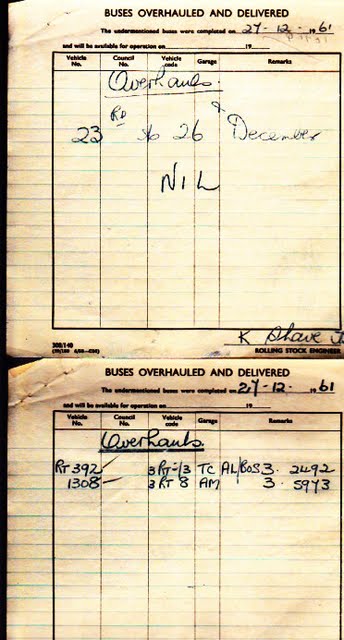 BUSES OVERHAULED AND DELIVERED
The undermentioned buses were completed on 27-12-1961
and will be available for operation on 19
Vehicle No. Council No. Vehicle code Garage Remarks
Overhauls.
23 Rd to 26 December
NIL
K Shave
308/140
ROLLING STOCK ENGINEER
BUSES OVERHAULED AND DELIVERED
The undermentioned buses were completed on 27-12-1961
and will be available for operation on 19
Vehicle No. Council No. Vehicle code Garage Remarks
Overhauls.
RT 392 3RT-13 TC AL/BOS 3. 2492
1308 3 RT 8 AM 3. 5973